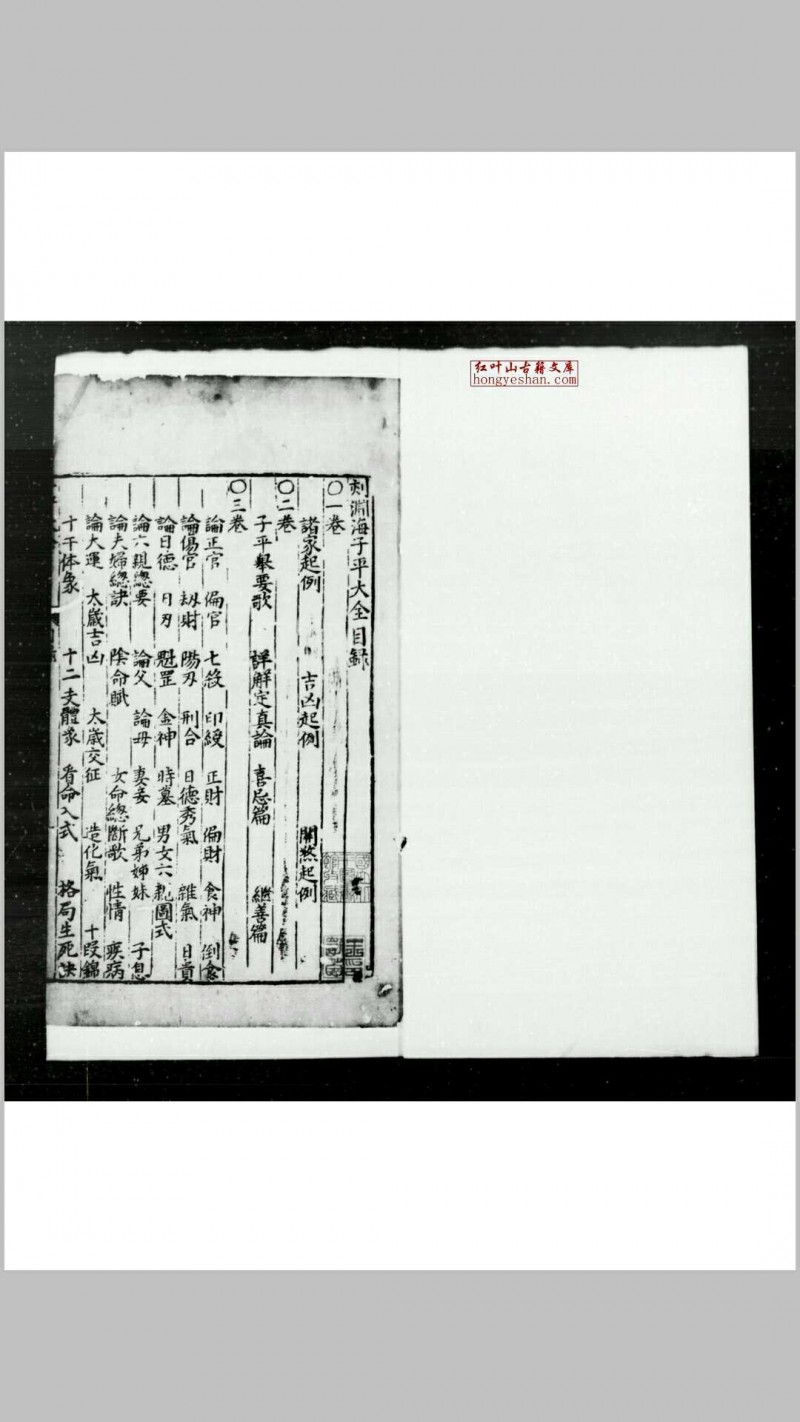 红叶山古籍文库
hongyeshan.com
刻淵海子平大全目錄
〇一卷
諸家起例 吉凶起例 開煞起例
〇二卷
子平舉要歌 詳解定真論 喜忌篇 繼善篇
〇三卷
論正官 偏官 七殺 印綬 正財 偏財 食神 倒食
論傷官 劫財 陽刃 刑合 日德秀氣 雜氣 日貴
論日德 日刃 魁罡 金神 時墓 男女六親圖式
論六親總要 論父 論母 妻妾 兄弟姊妹 子息
論夫婦總訣 陰命賦 女命總斷歌 性情 疾病
論大運 太歲吉凶 太歲交征 造化氣 十段錦
十干体象 十二支體象 看命入式 格局生死決